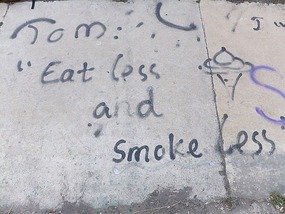 Tom:
"Eat less
and
smoke less